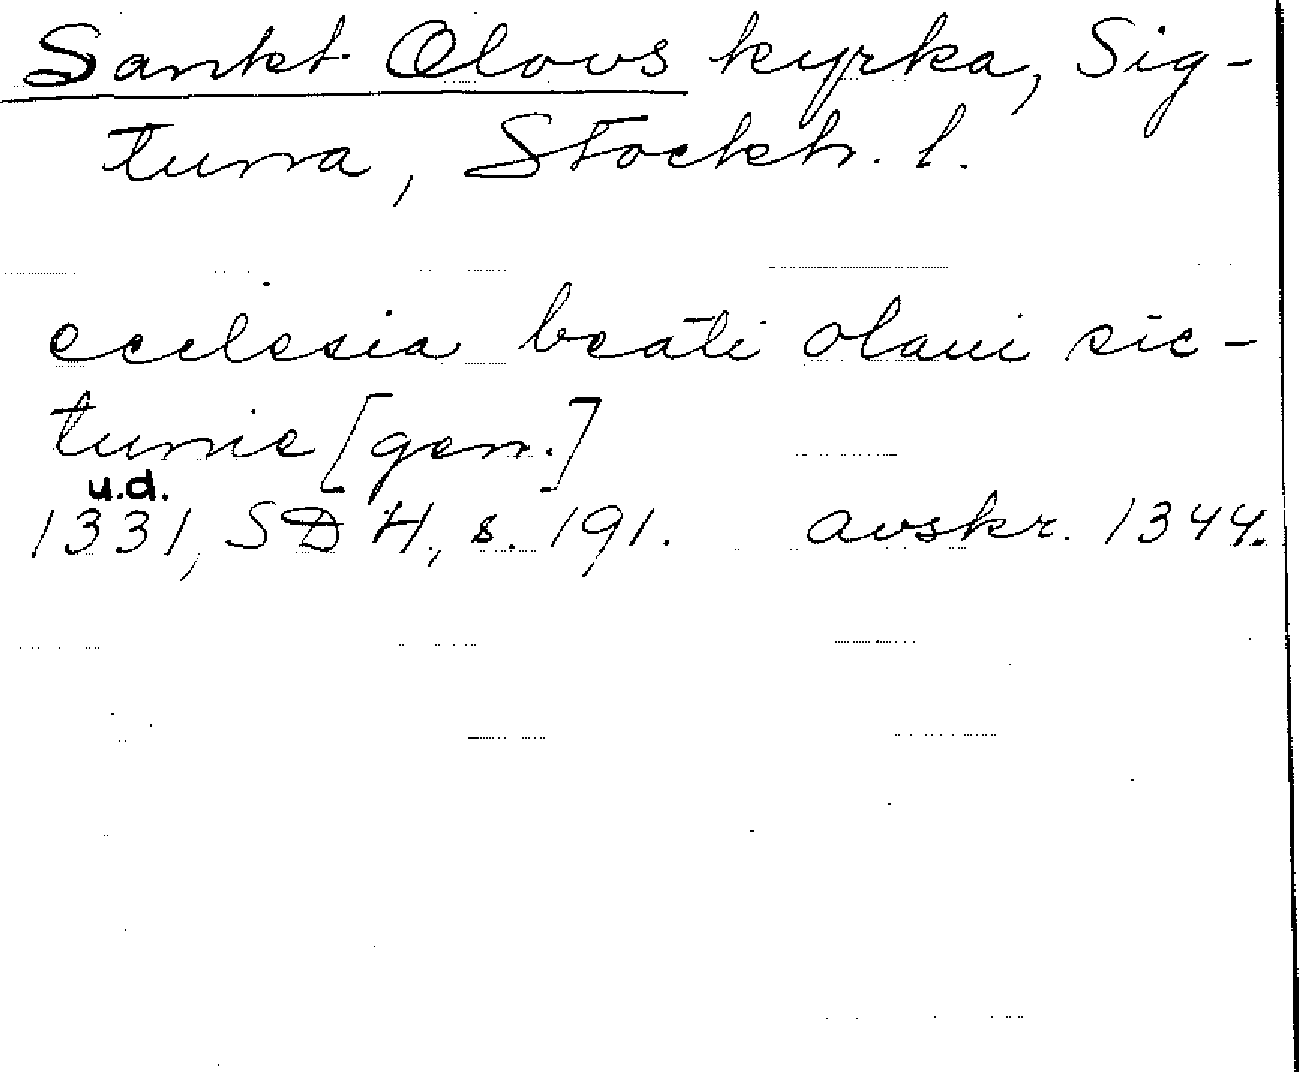 Sankt Olovs kyrka, Sig-
tuna, Stockh. l.
ecclesia beati olaui sic-
tunie [gen.]
u.d.
1331, SD 4, s. 191. avskr. 1344.